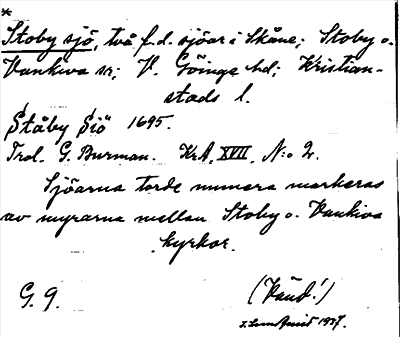 *
Stoby sjö, två f.d. sjöar i Skåne; Stoby o.
Vankiva sn; V. Göinge hd; Kristian-
stads l.
Ståby Siö 1695.
Trol. G. Burman. KrA, XVII, N:o 2.
Sjöarna torde numera markeras
av myrarna mellan Stoby o. Vankiva
kyrkor.
G. 9.
(Vänd!)
1937.